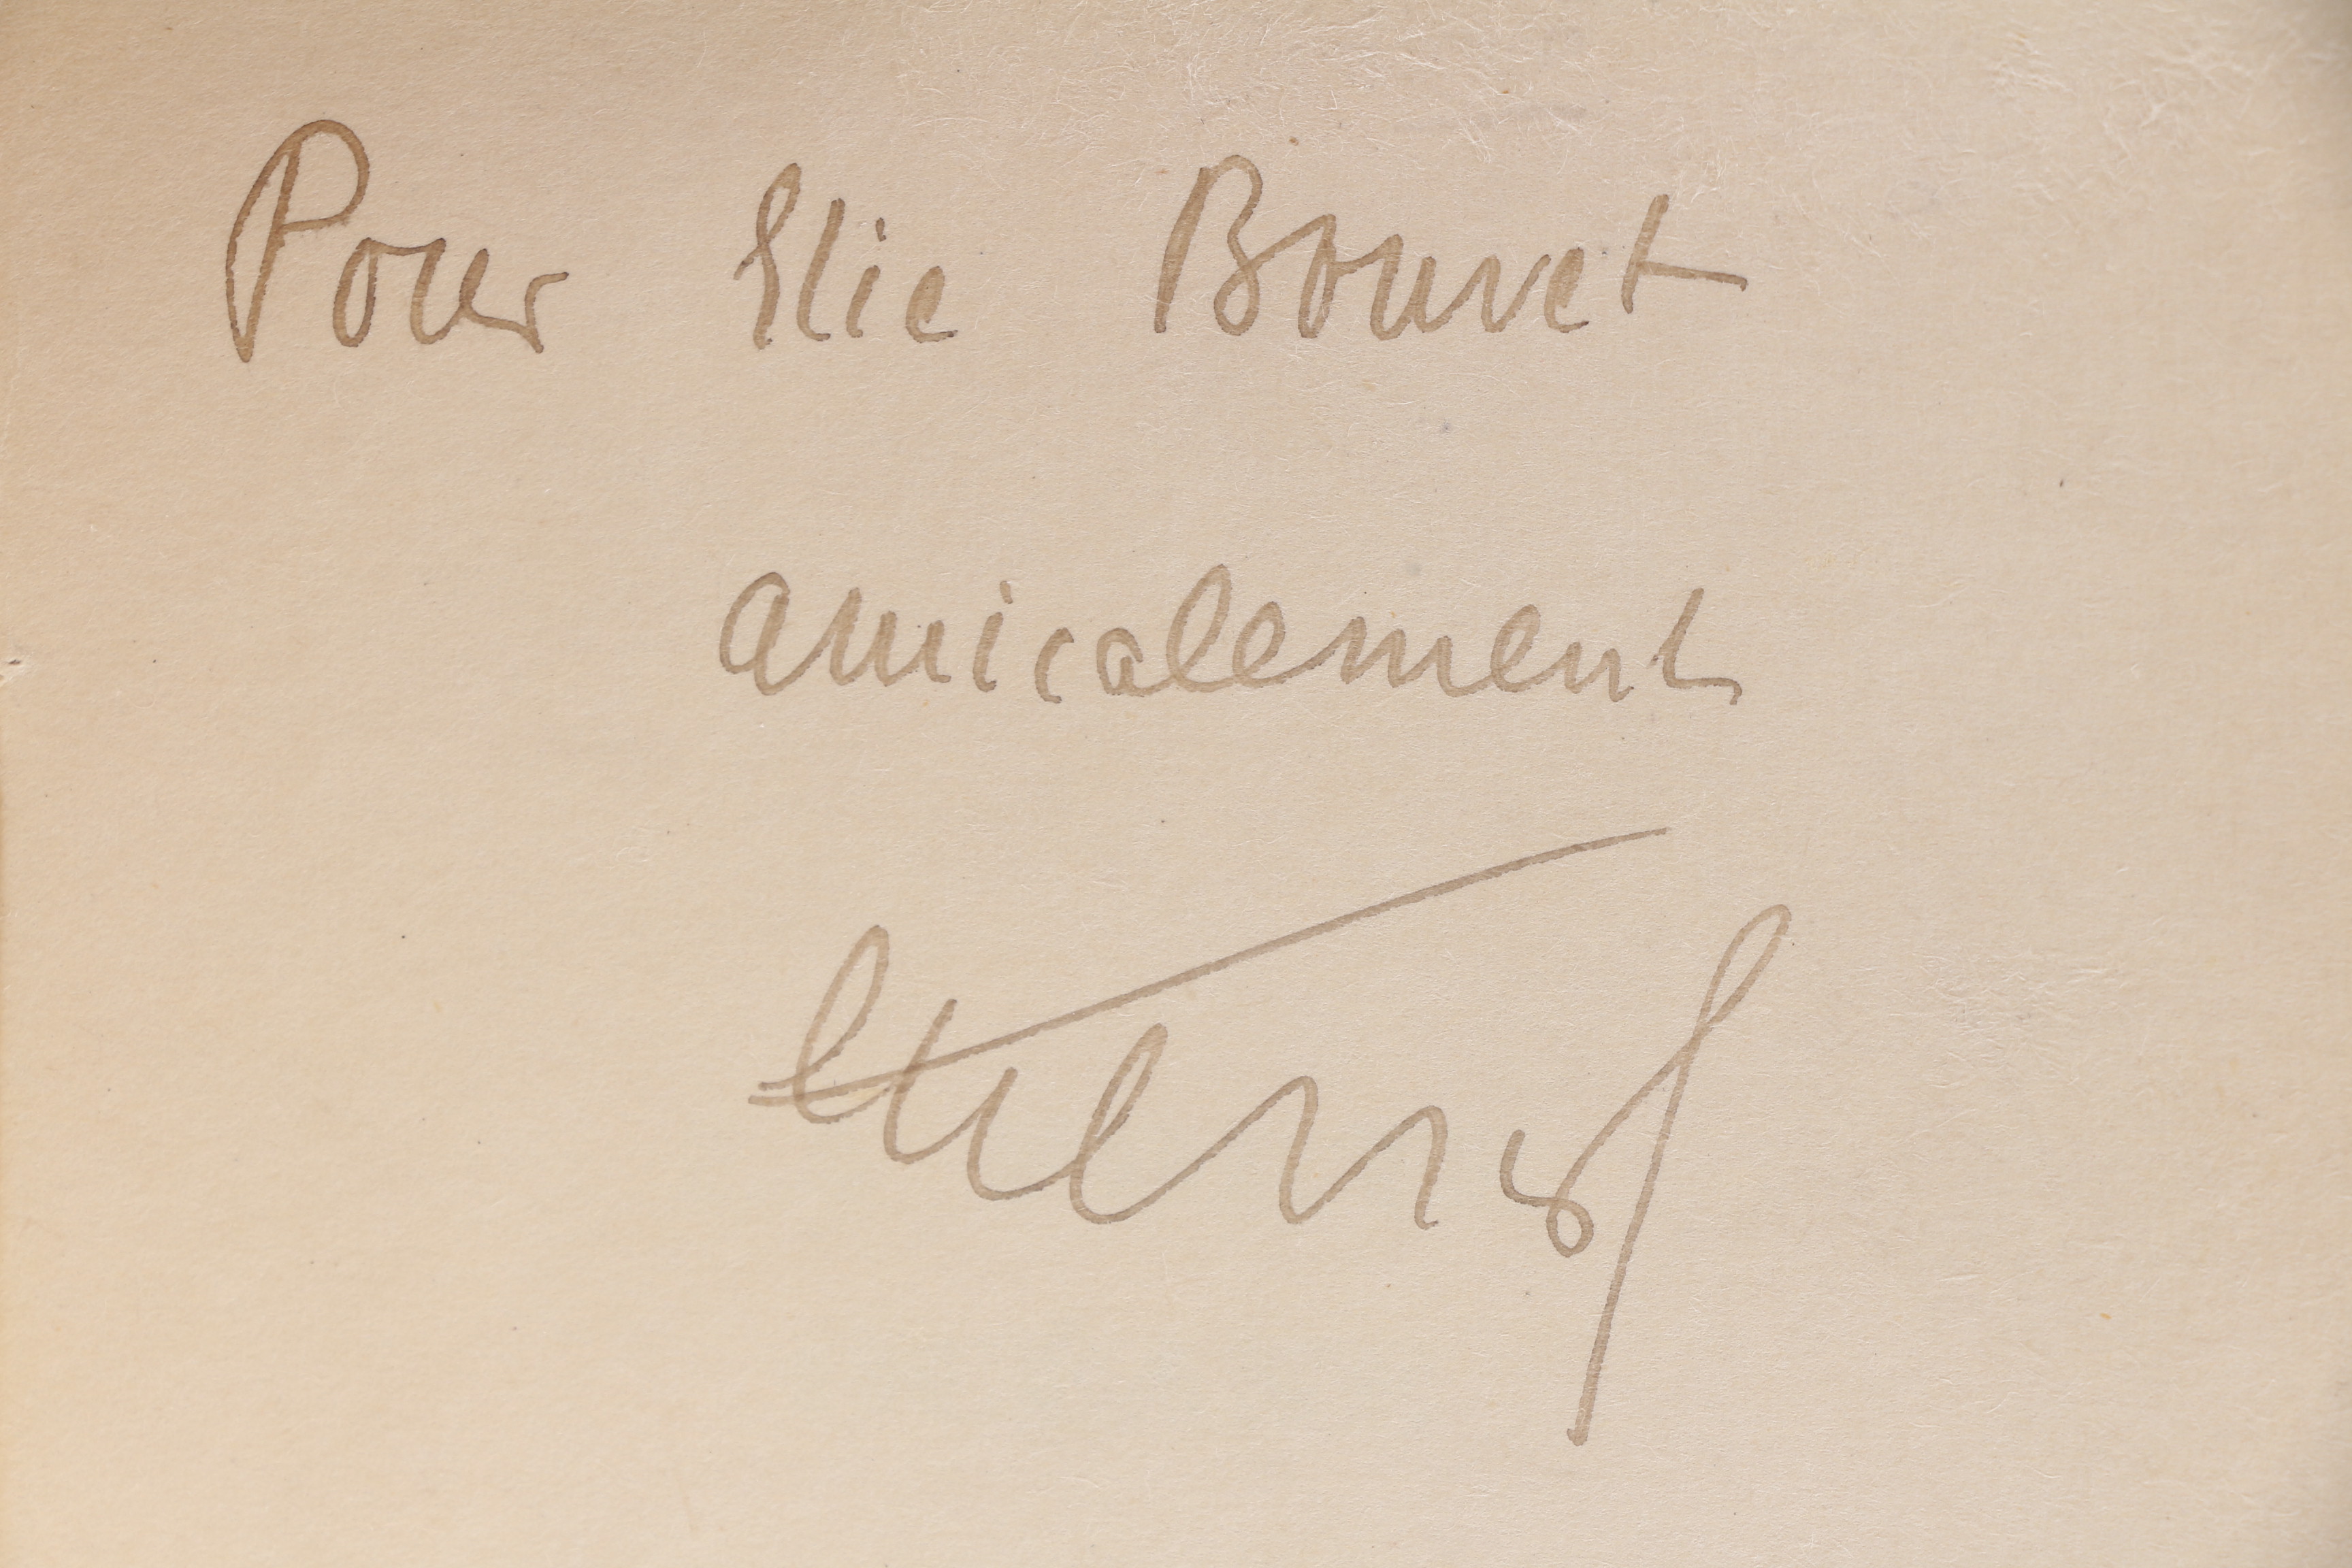 Pour Elie Bouvet
amicalement